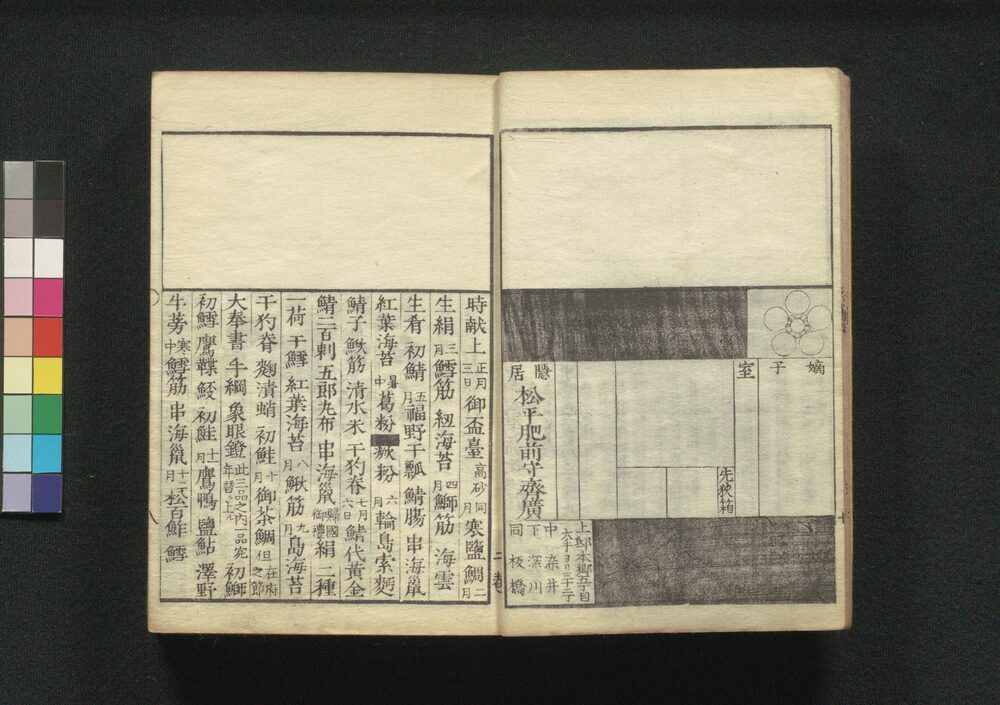 嫡子
室
先狭箱
隠居 松平肥前守斉廣
上邸本郷五丁目
中 染井
下 深川
同 板橋
時献上 正月三日御盃臺 高砂 同月寒鹽鯛 二月
生絹 三月鱈筋 紐海苔 四月鰤筋 海雲
生肴 初鯖 五月福野干瓢 鯖腸 串海鼠
紅葉海苔 暑中葛粉 蕨粉 六月輪島索麪
鯖子 鰍筋 清水米 干豹脊 七月六日鯖代黄金
鯖二百刺五郎丸布 串海鼠 帰國御禮絹二種
一荷 干鱈 紅葉海苔 八月鰍筋 九月島海苔
干豹脊 麹漬蛸 初鮭 十月御茶 鯛 但在府之節
大奉書 手綱 象眼鐙 此三品之内一品宛年替上ル 初鰤
初鱈 鷹鞢 鮫 初鮭 十一月鷹鴨 鹽鮎 澤野
牛蒡 寒中鱈筋 串海鼠 十二月松百鮓 鱈
二 巻